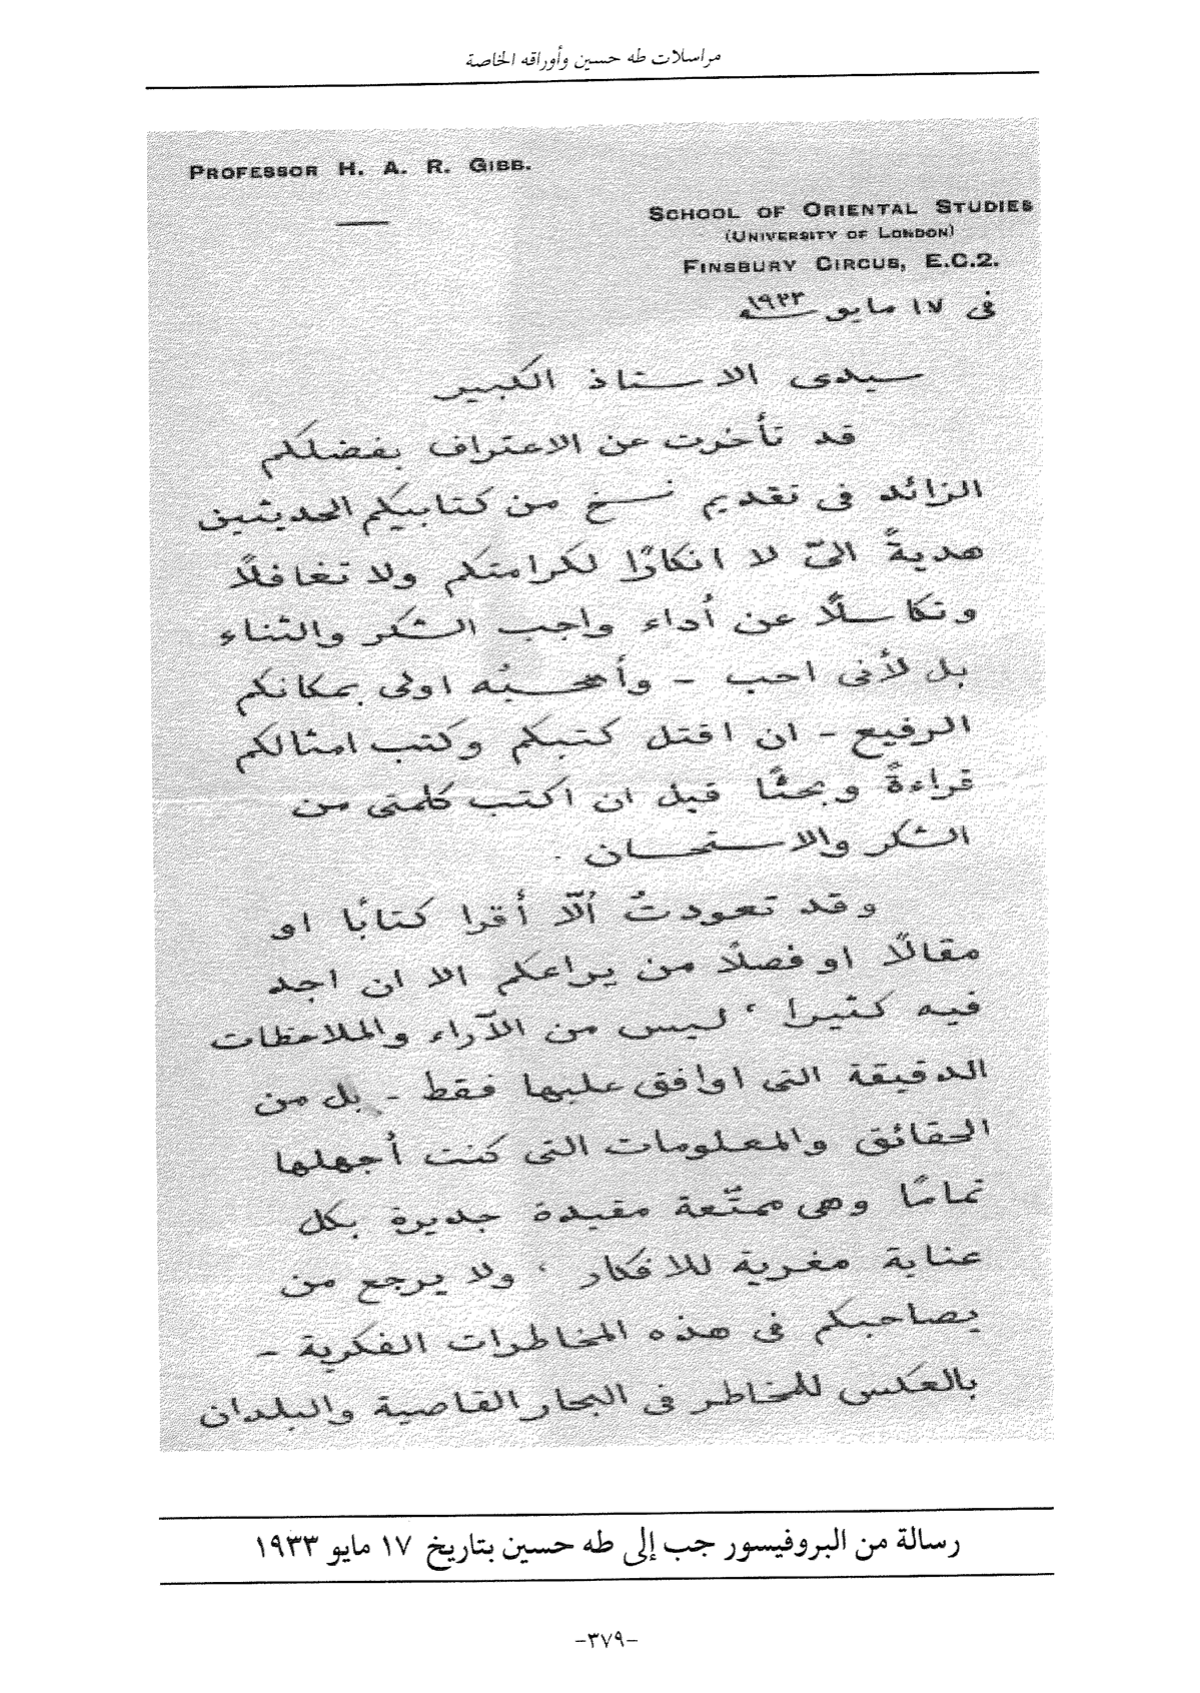 مراسلات طه حسين وأوراقه الخاصة
PROFESSOR H. A. R. GIBB.
SCHOOL OF ORIENTAL STUDIES
(UNIVERSITY OF LONDON)
FINSBURY CIRCUS, E.C.2.
فى ١٧ مايو ١٩٣٣
سيدى الاستاذ الكبير
قد تأخرت عن الاعتراف بفضلكم
الزائد فى تقديم نسخ من كتابيكم الحديثين
هديةً الىّ لا انكارًا لكرامتكم ولا تغافلًا
وتكاسلًا عن أداء واجب الشكر والثناء
بل لأنى احب - وأحسبُه اولى بمكانكم
الرفيع - ان اقتل كتبكم وكتب امثالكم
قراءةً وبحثًا قبل ان اكتب كلمتى من
الشكر والاستحسان .
وقد تعودتُ ألّا أقرا كتابًا او
مقالًا او فصلًا من يراعكم الا ان اجد
فيه كثيرا ، ليس من الآراء والملاحظات
الدقيقة التى اوافق عليها فقط - بل من
الحقائق والمعلومات التى كنت أجهلها
تمامًا وهى ممتّعة مفيدة جديرة بكل
عناية مغرية للافكار ، ولا يرجع من
يصاحبكم فى هذه المخاطرات الفكرية -
بالعكس للمخاطر فى البحار القاصية والبلدان
رسالة من البروفيسور جب إلى طه حسين بتاريخ ١٧ مايو ١٩٣٣
-٣٧٩-